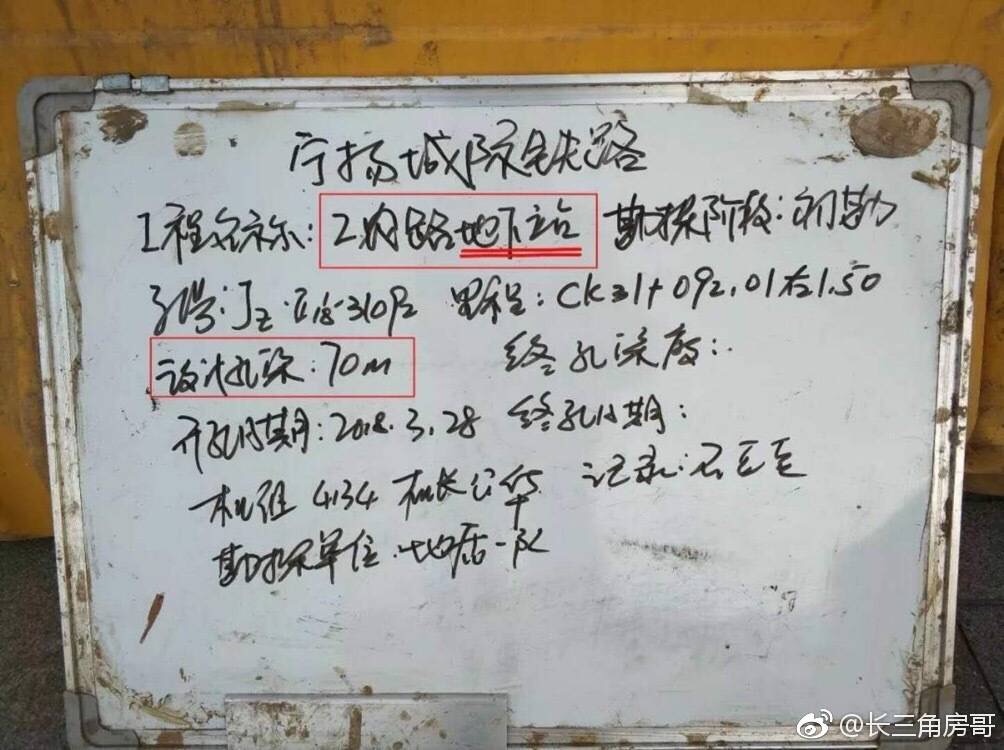 宁扬城际铁路
工程名称: 工农路地下站 勘探阶段: 初勘
孔号: Jz 里程: CK31+092.01右1.50
设计孔深: 70m 终孔深度:
开孔日期: 2018.3.28 终孔日期:
机组 4134 机长 记录: 石
勘探单位. 地质一队
@长三角房哥